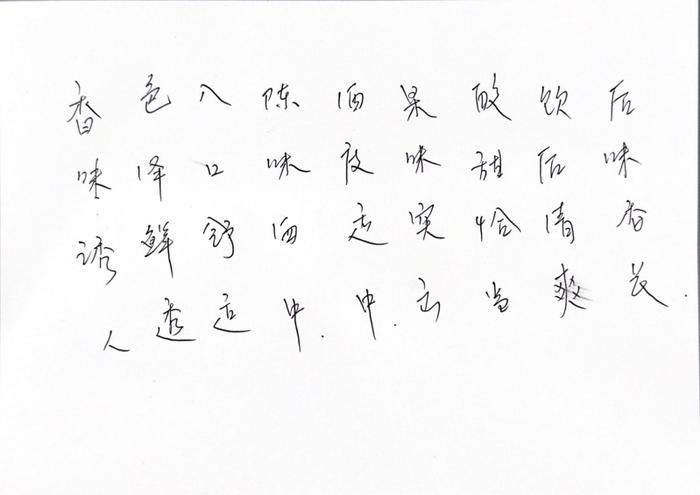 香味诱人
色泽鲜透
入口舒适
陈味酒中.
酒度适中.
果味突出
酸甜恰当
饮后清爽
后味长.